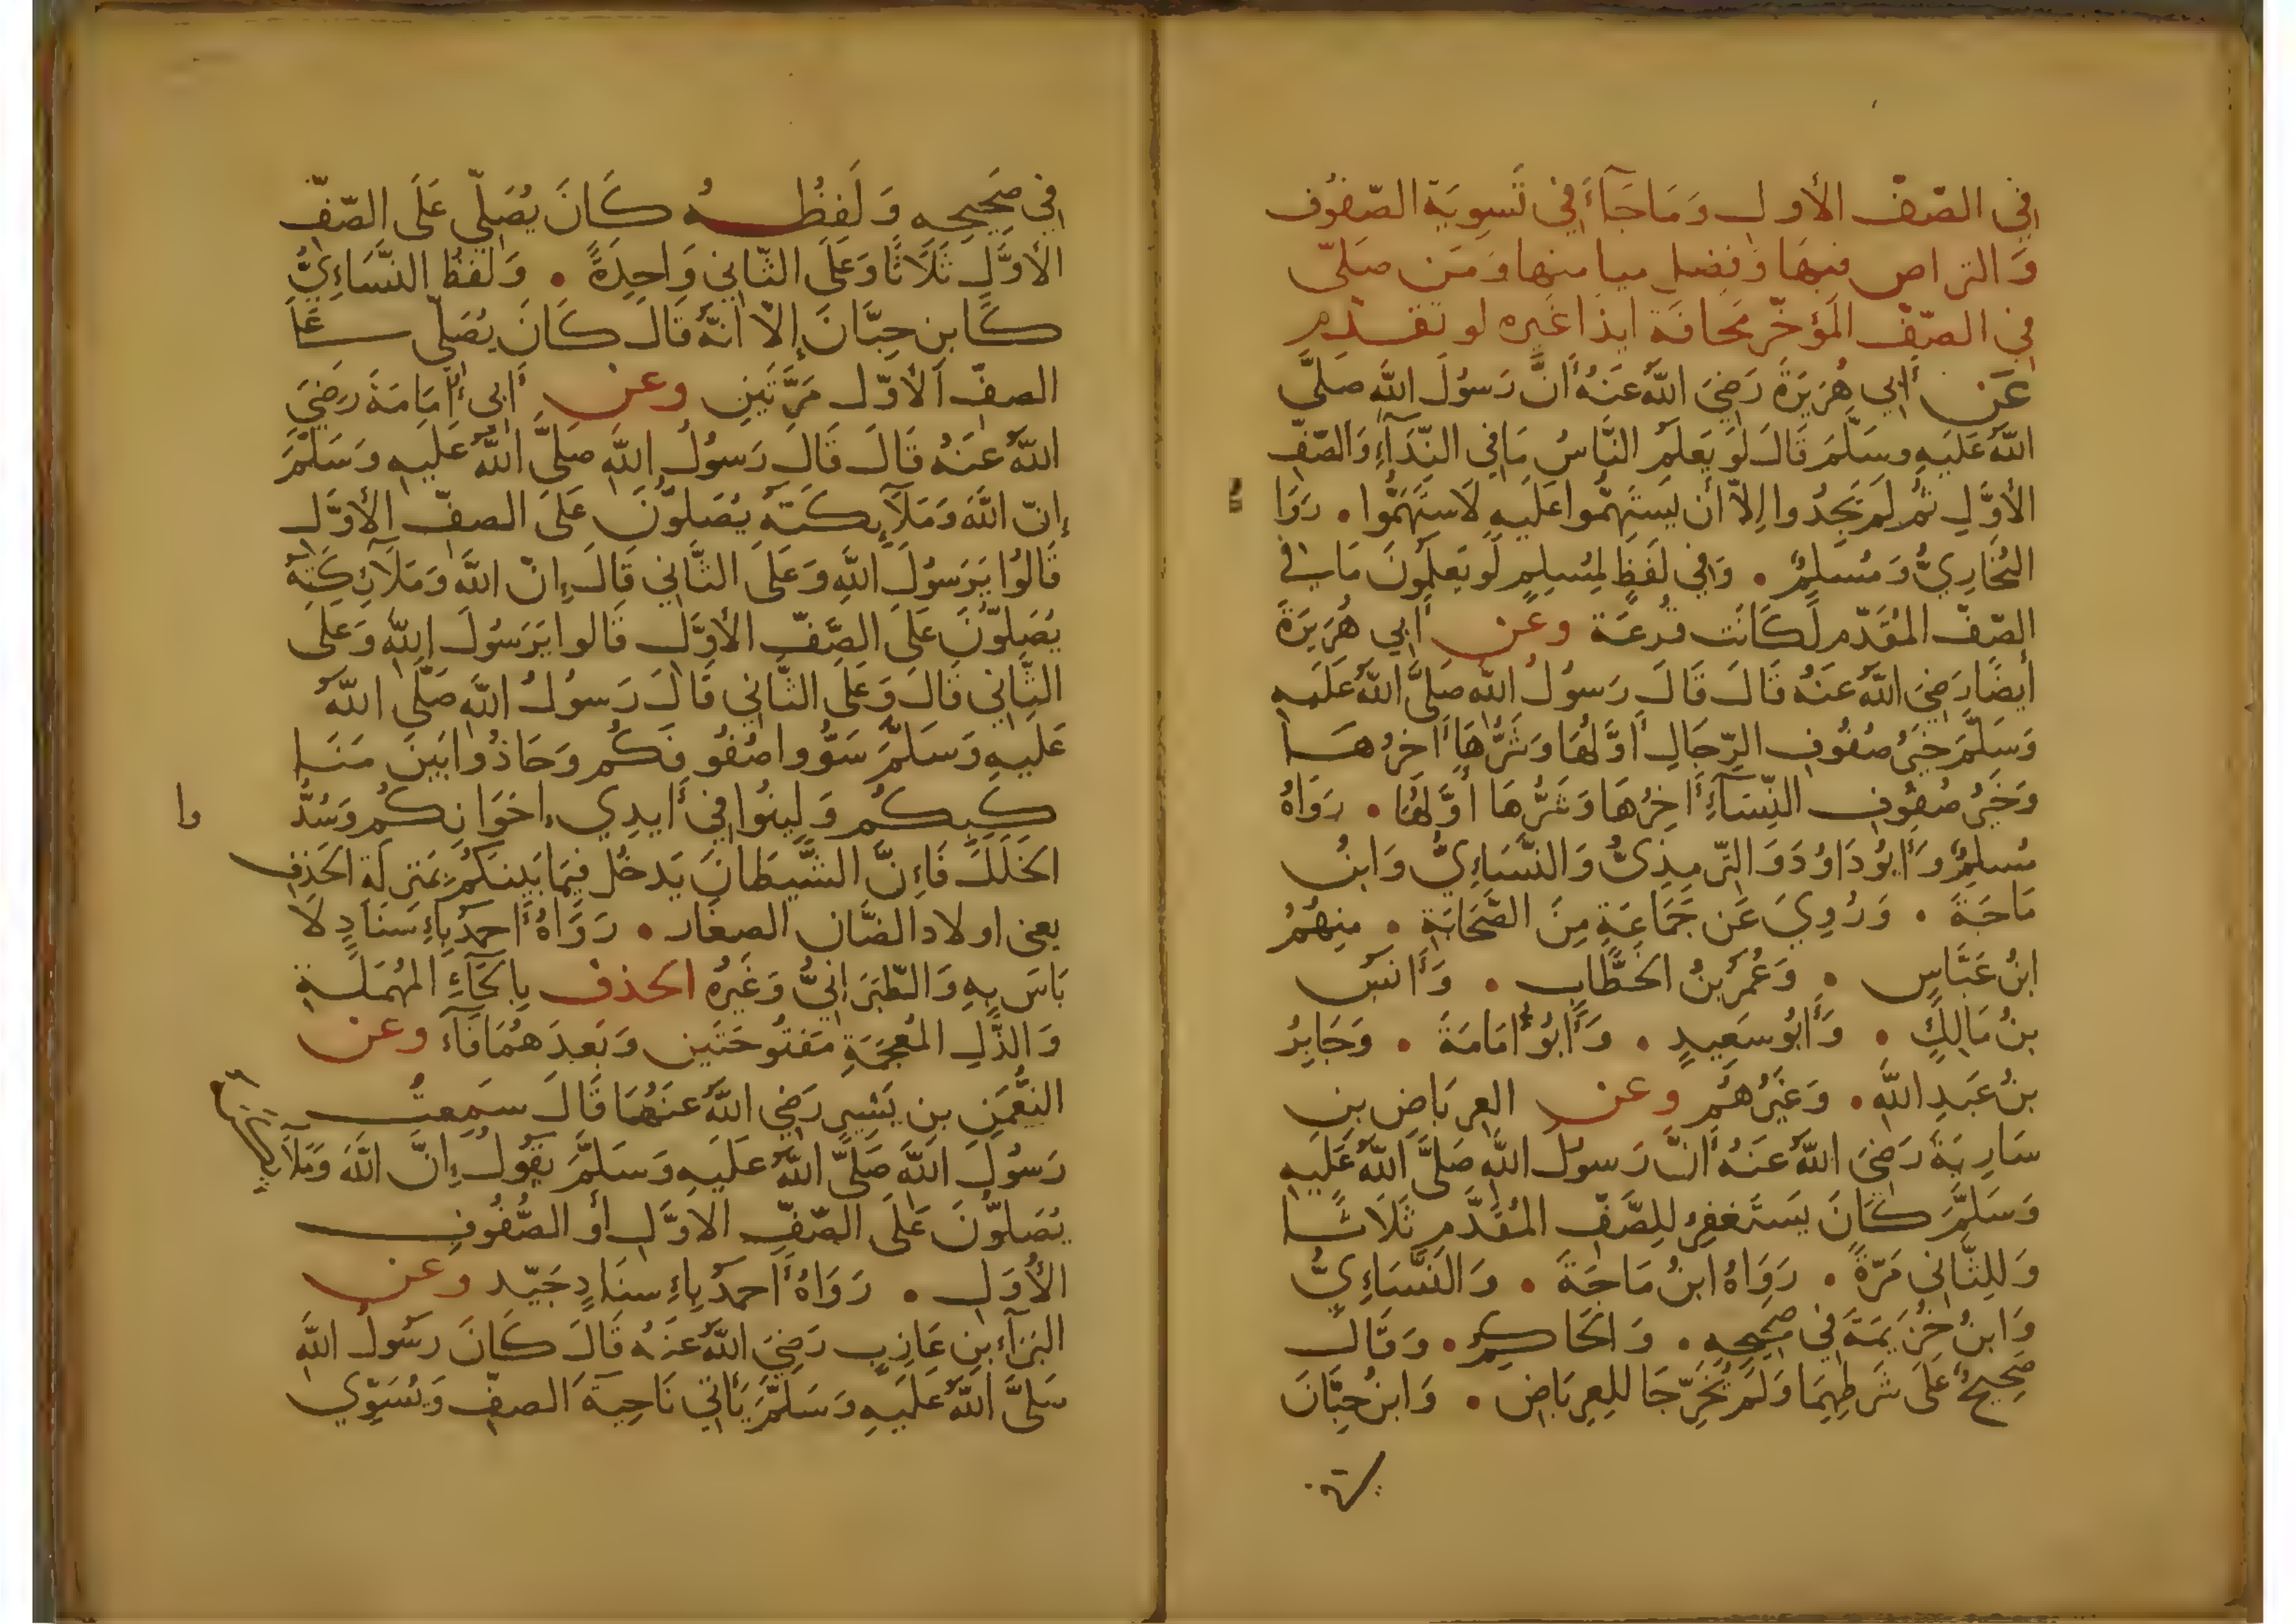 في الصّفّ الأول وَمَا جَآءَ في تَسوِيَة الصّفُوف
وَالتراص فيهَا وَفضل ميامنها وَمَن صَلّى
في الصّفّ المؤخّر مَخافَة إيذا غَيره لو تقدم
عَن أبي هُرَيرَةَ رَضيَ اللهُ عَنهُ أنَّ رَسُولَ اللهِ صَلىَّ
اللهُ عَلَيهِ وسَلَّمَ قَالَ لَو يَعلَم النَّاسُ مَا في النِّدَآءِ وَالصّفّ
الأوَّلِ ثُم لَم يَجِدُوا إلاّ أن يَستَهِمُوا عَلَيهِ لَاستَهَمُوا . رَوَا
البُخَارِيُّ وَمُسلِمٌ . وَفي لَفظٍ لِمُسلِمٍ لَو يَعلَمُونَ مَا في
الصّفّ المُقَدّم لَكَانَت قُرعَة وعن أبي هُرَيرَةَ
أيضًا رَضيَ اللهُ عَنهُ قَالَ قَالَ رَسولُ اللهِ صَلىَّ اللهُ عَلَيهِ
وَسَلَّمَ خَيرُ صُفُوفِ الرِّجَالِ أوَّلُهَا وَشَرُّهَا أخرُهَا
وَخَيرُ صُفُوفِ النِّسَآءِ أخِرُهَا وَشَرُّهَا أوَّلُهَا . رَوَاهُ
مُسلِمٌ وَأبُو دَاوُدَ وَالتِّرمِذِيُّ وَالنَّسَاءِيُّ وَابنُ
مَاجَةَ . وَرُوِيَ عَن جَمَاعَةٍ مِنَ الصَّحَابَةِ . مِنهُمُ
ابنُ عَبَّاسٍ . وَعُمَرُ بنُ الخَطَّابِ . وَأنَسُ
بنُ مَالِكٍ . وَأبُو سَعِيدٍ . وَأبُو أمَامَةَ . وَجَابِرُ
بنُ عَبدِ اللهِ . وَغَيرُهُم وعن العِربَاضِ بنِ
سَارِيَةَ رَضيَ اللهُ عَنهُ أنَّ رَسولَ اللهِ صَلىَّ اللهُ عَلَيهِ
وَسَلَّمَ كَانَ يَستَغفِرُ لِلصَّفّ المُقَدَّمِ ثَلَاثًا
وَلِلثَّانى مَرّةً . رَوَاهُ ابنُ مَاجَةَ . وَالنَّسَاءِيُّ
وَابنُ خُزَيمَةَ في صَحِيحِهِ . وَالحَاكِمُ . وَقَالَ
صَحِيحٌ عَلَى شَرطِهِمَا وَلَم يُخَرِّجَا لِلعِربَاضِ . وَابنُ حِبَّانَ
في صَحِيحِهِ وَلَفظُهُ كَانَ يُصَلِّي عَلَى الصّفّ
الأوَّلِ ثَلَاثًا وَعَلَى الثَّانِي وَاحِدَةً . وَلَفظُ النَّسَاءِيُّ
كَابنِ حِبَّانَ إلّا أنَّهُ قَالَ كَانَ يُصَلّي عَلَى
الصفّ الأوّل مَرَّتَينِ وعن أبي أُمَامَةَ رَضيَ
اللهُ عَنهُ قَالَ قَالَ رَسُولُ اللهِ صَلىَّ اللهُ عَلَيهِ وَسَلَّمَ
إنّ اللهَ وَمَلَآئِكَتَهُ يُصَلُّونَ عَلَى الصفّ الأوَّلِ
قَالُوا يَرَسُولَ اللهِ وَعَلَى الثَّانِي قَالَ إنّ اللهَ وَمَلَآئِكَتَهُ
يُصَلُّونَ عَلَى الصَّفّ الأوَّل قَالُوا يَرَسُولَ اللهِ وَعَلَى
الثَّانِي قَالَ وَعَلَى الثَّانِي قَالَ رَسُولُ اللهِ صَلىَّ اللهُ
عَلَيهِ وَسَلَّمَ سَوُّوا صُفُوفَكُم وَحَاذُوا بَينَ مَنَا
كِبِكُم وَلِينُوا في أيدِي إخوَانِكُم وَسُدُّ
وا
الخَلَلَ فَإنَّ الشَّيطَانَ يَدخُلُ فِيمَا بَينَكُم بِمَنزِلَةِ الحَذَفِ
يعنى اولاد الضّان الصغار . رَوَاهُ أحمَدُ بِإسنَادٍ لَا
بَاسَ بِهِ وَالطَّبَرَانِيُّ وَغَيرُهُ الحذف بِالحَآءِ المُهمَلَةِ
وَالذَّالِ المُعجَمَةِ مَفتُوحَتَينِ وَبَعدَهُمَا فَآء وعن
النُّعمَنِ بنِ بَشِيرٍ رَضي اللهُ عَنهُمَا قَالَ سَمِعتُ
رَسُولَ اللهِ صَلىَّ اللهُ عَلَيهِ وَسَلَّمَ يَقُولُ إنَّ اللهَ وَمَلَآئِكَتَهُ
يُصَلُّونَ عَلَى الصّفِّ الاوَّلِ أو الصُّفُوفِ
الأُوَلِ . رَوَاهُ أحمَدُ بِإسنَادٍ جَيّد وعن
البَرَآءِ بنِ عَازِبٍ رَضيَ اللهُ عَنهُ قَالَ كَانَ رَسُولُ اللهِ
صَلىَّ اللهُ عَلَيهِ وَسَلَّمَ يَأتي نَاحِيَةَ الصفّ وَيُسَوِّي